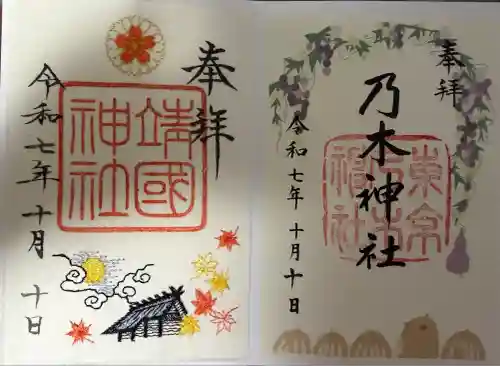 奉拝
靖國
神社
令和七年十月十日
奉拝
乃木神社
東京
乃木
神社
令和七年十月十日